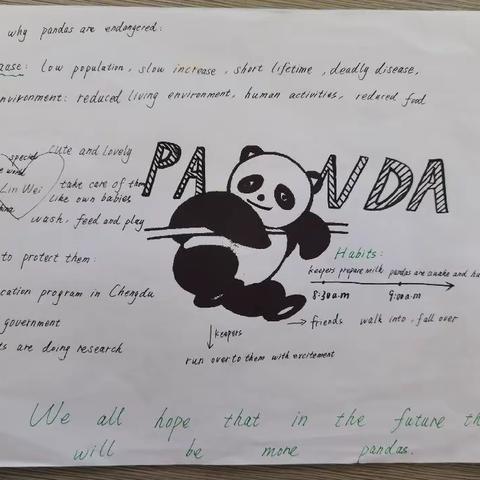 why pandas are endangered:
ause: low population, slow increase, short lifetime, deadly disease,
nvironment: reduced living environment, human activities, reduced food
special cute and lovely
PANDA
Lin Wei take care of them
like own babies
wash, feed and play
to protect them:
Habits:
keepers prepare milk pandas are awake and hu
8:30a.m 9:00a.m
cation program in Chengdu
government
ts are doing research
keepers
run over to them with excitement
friends walk into, fall over
We all hope that in the future th
will be more pandas.